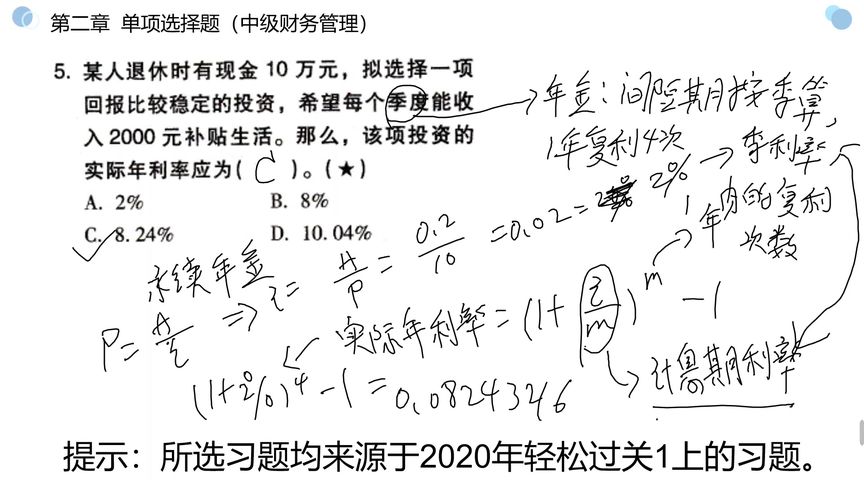 第二章 单项选择题（中级财务管理）
5. 某人退休时有现金 10 万元，拟选择一项
回报比较稳定的投资，希望每个季度能收
入 2000 元补贴生活。那么，该项投资的
实际年利率应为( C )。(★)
A. 2%
B. 8%
C. 8.24%
D. 10.04%
年金：间隔期按季算，
1年复利4次
季利率
1年内的复利
次数
永续年金
P=A/i ⇒ i= A/P = 0.2/10 =0.02= 2%
实际年利率=(1+ i/m)^m -1
(1+2%)^4 -1=0.0824326
计息期利率
提示：所选习题均来源于2020年轻松过关1上的习题。